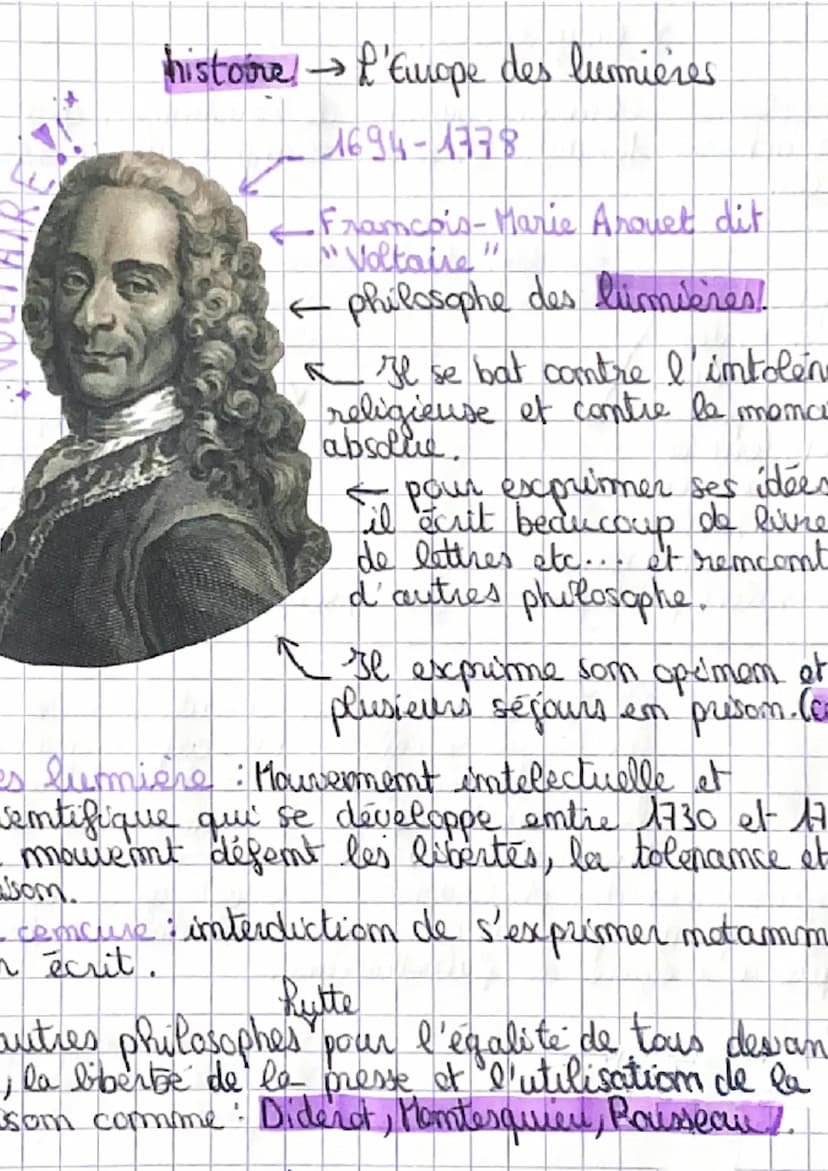 histoire → L'Europe des lumières
VOLTAIRE !
1694-1778
Francois-Marie Arouet dit
"Voltaire"
philosophe des lumières.
Il se bat contre l'intolér
religieuse et contre la monar
absolue.
pour exprimer ses idées
il écrit beaucoup de livre
de lettres etc... et rencont
d'autres philosophe.
Il exprime son opinion et
plusieurs séjours en prison. (ce
es lumière : Mouvemment intelectuelle et
ientifique qui se développe entre 1730 et 17
mouvemnt défent les libertés, la tolerance et
aison.
cencure : interdiction de s'exprimer notamm
n écrit.
lutte
autres philosophes pour l'égalité de tous devan
, la liberté de la presse et l'utilisation de la
ison comme : Diderot, Montesquieu, Rousseau.